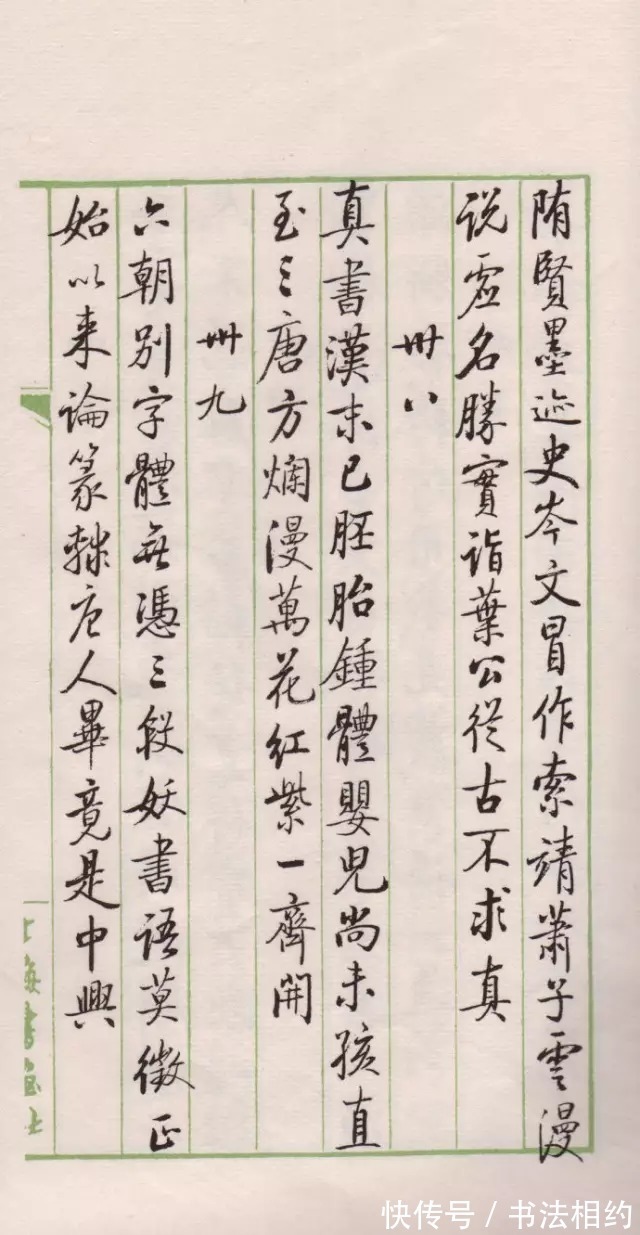 隋賢墨迹史岑文冒作索靖蕭子雲漫
说虚名勝實詣葉公従古不求真
卅八
真書漢末已胚胎鍾體嬰兒尚未孩直
至三唐方爛漫萬花红紫一齊開
卅九
六朝别字體無憑三段妖書語莫徵正
始以来論篆隸唐人畢竟是中興
上海書畫士
快传号／书法相约